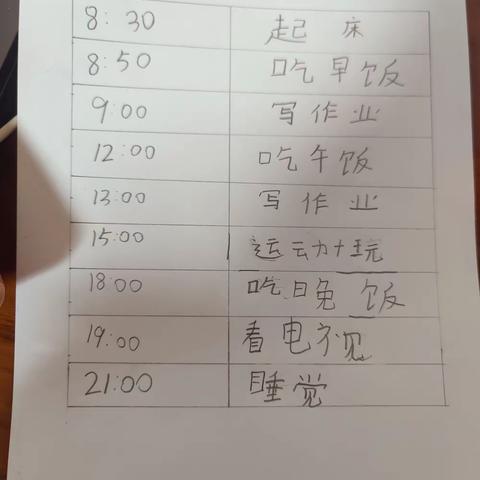 8:30 起床
8:50 吃早饭
9:00 写作业
12:00 吃午饭
13:00 写作业
15:00 运动+玩
18:00 吃晚饭
19:00 看电视
21:00 睡觉